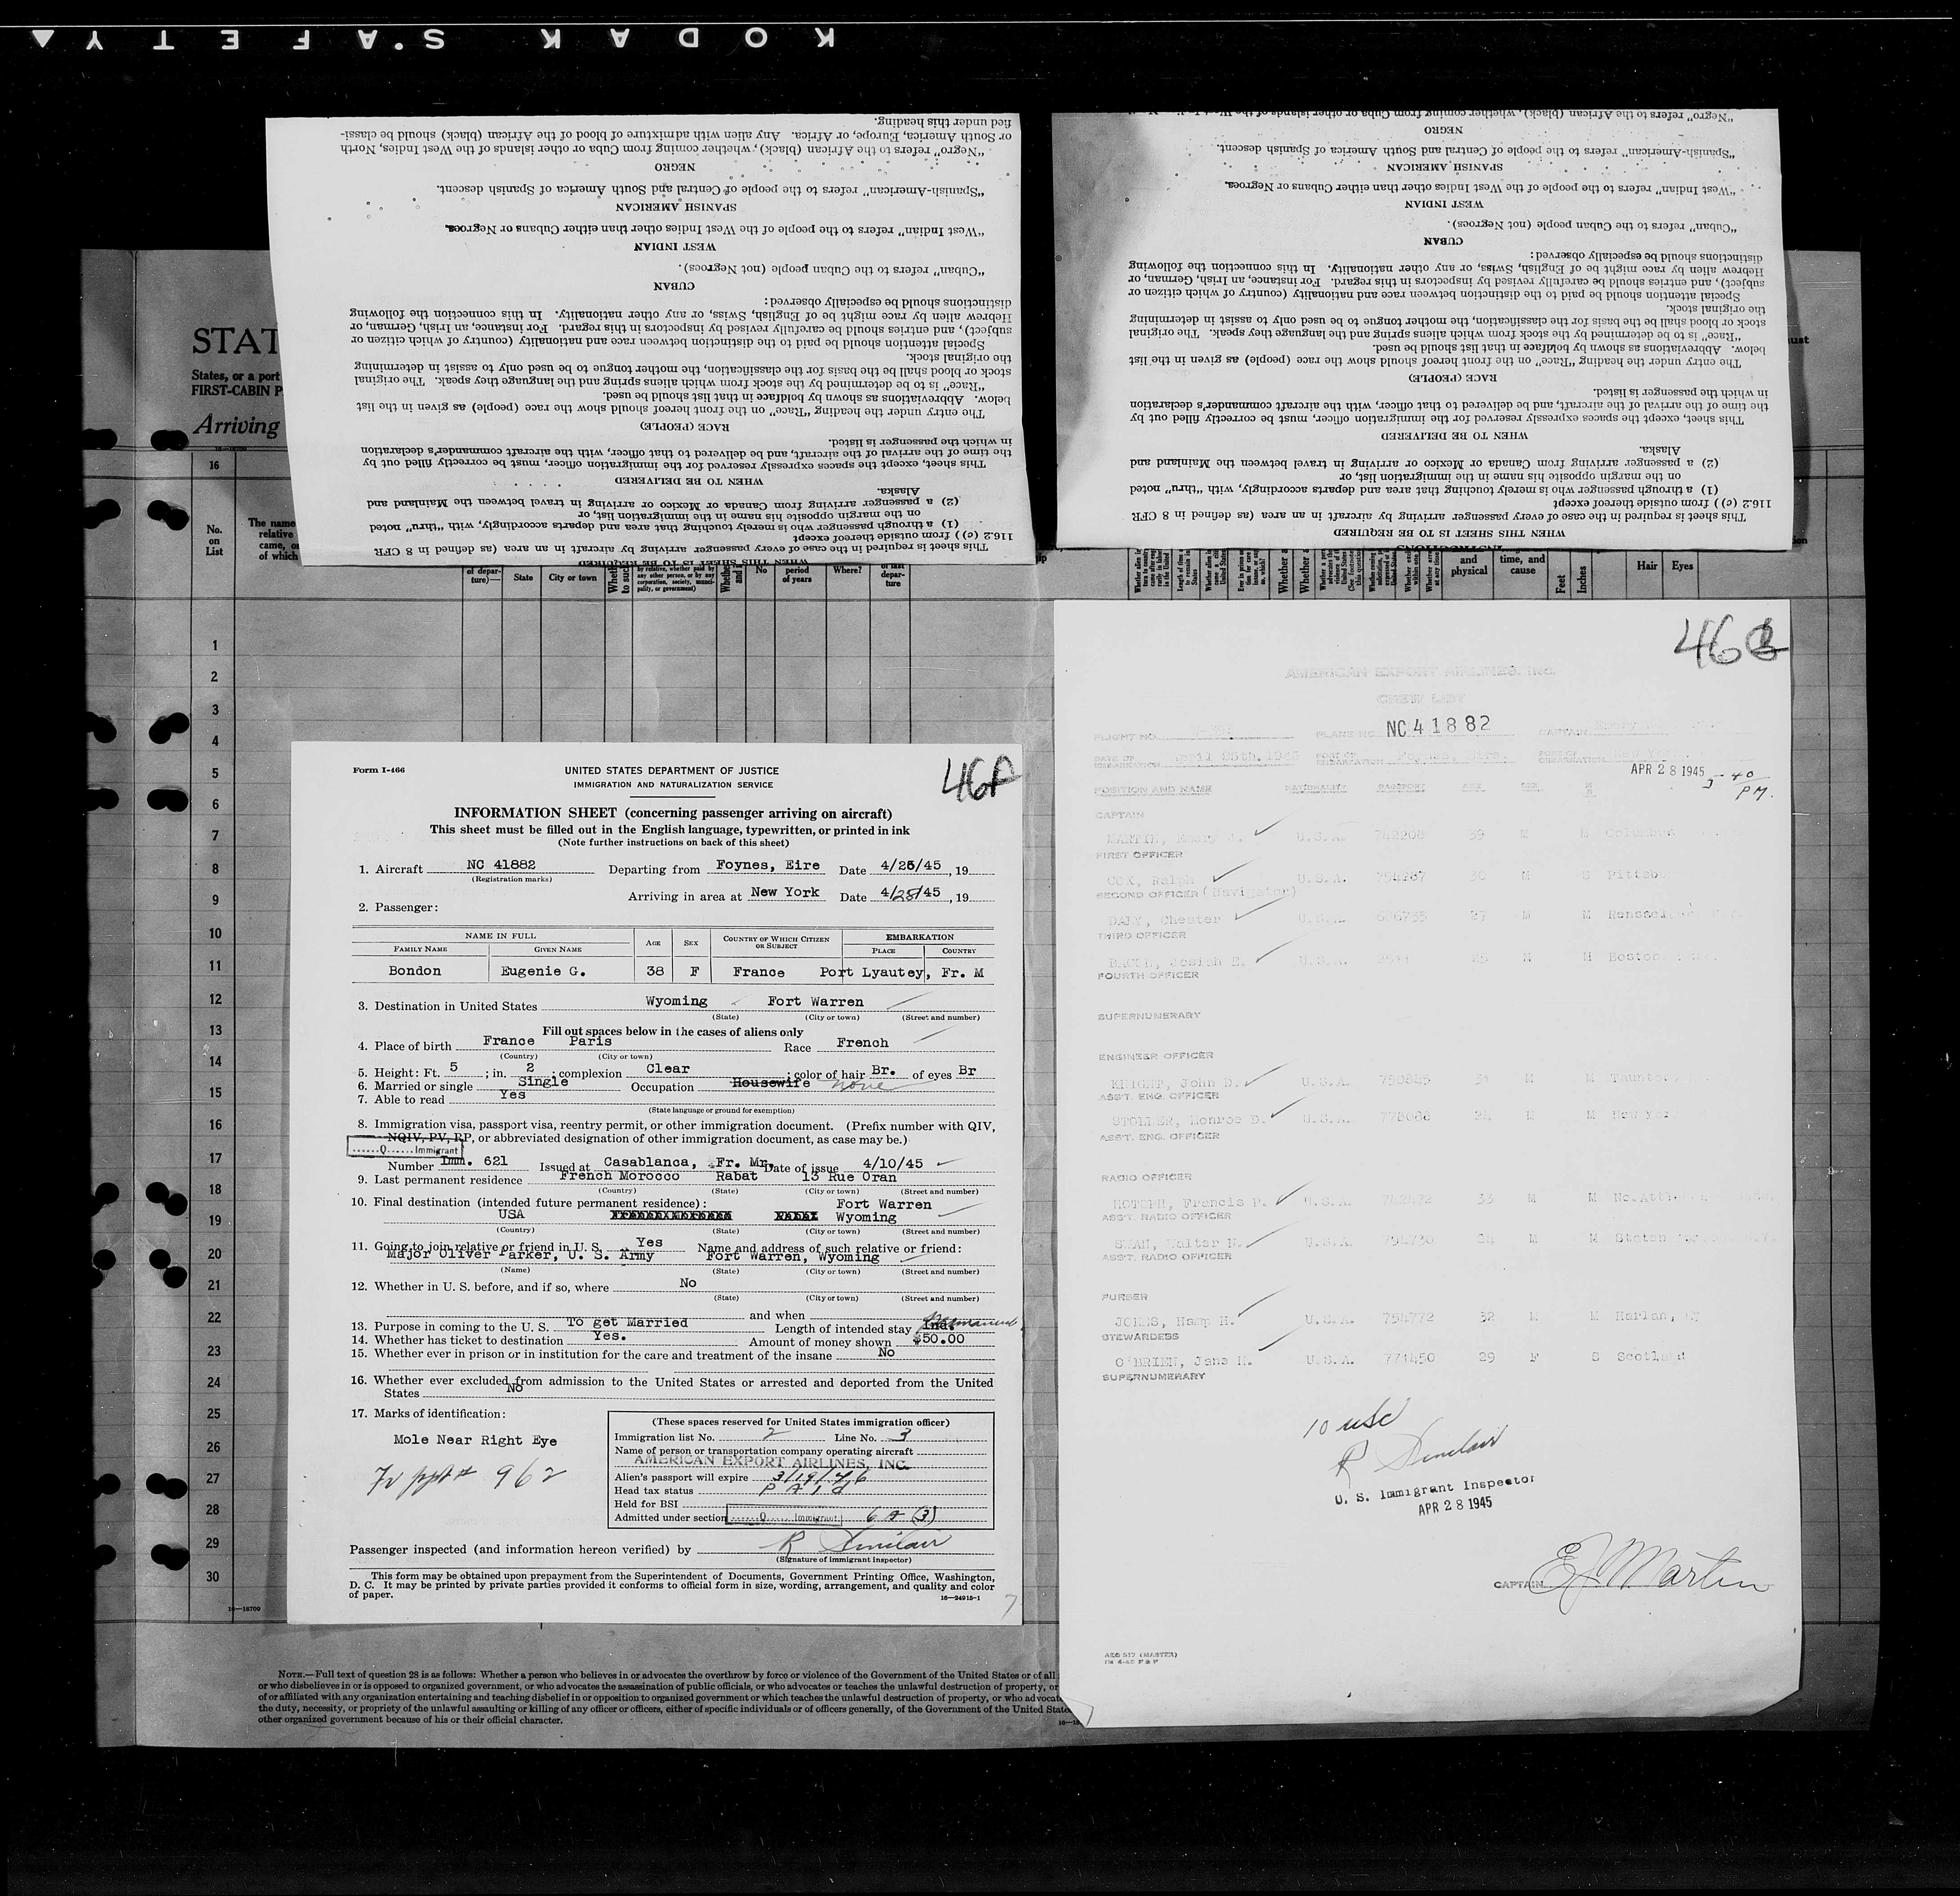 KODAK SAFETY
fied under this heading.
or South America, Europe, or Africa. Any alien with admixture of blood of the African (black) should be classi-
"Negro" refers to the African (black), whether coming from Cuba or other islands of the West Indies, North
NEGRO
"Spanish-American" refers to the people of Central and South America of Spanish descent.
SPANISH AMERICAN
"West Indian" refers to the people of the West Indies other than either Cubans or Negroes.
WEST INDIAN
"Cuban" refers to the Cuban people (not Negroes).
CUBAN
distinctions should be especially observed:
Hebrew alien by race might be of English, Swiss, or any other nationality. In this connection the following
subject), and entries should be carefully revised by inspectors in this regard. For instance, an Irish, German, or
Special attention should be paid to the distinction between race and nationality (country of which citizen or
the original stock.
stock or blood shall be the basis for the classification, the mother tongue to be used only to assist in determining
"Race" is to be determined by the stock from which aliens spring and the language they speak. The original
below. Abbreviations as shown by boldface in that list should be used.
The entry under the heading "Race" on the front hereof should show the race (people) as given in the list
RACE (PEOPLE)
in which the passenger is listed.
the time of the arrival of the aircraft, and be delivered to that officer, with the aircraft commander's declaration
This sheet, except the spaces expressly reserved for the immigration officer, must be correctly filled out by
WHEN TO BE DELIVERED
Alaska.
(2) a passenger arriving from Canada or Mexico or arriving in travel between the Mainland and
on the margin opposite his name in the immigration list, or
(1) a through passenger who is merely touching that area and departs accordingly, with "thru" noted
116.2 (c)) from outside thereof except
This sheet is required in the case of every passenger arriving by aircraft in an area (as defined in 8 CFR
WHEN THIS SHEET IS TO BE REQUIRED
"Negro" refers to the African (black), whether coming from Cuba or other islands of the West Indies, North
NEGRO
"Spanish-American" refers to the people of Central and South America of Spanish descent.
SPANISH AMERICAN
"West Indian" refers to the people of the West Indies other than either Cubans or Negroes.
WEST INDIAN
"Cuban" refers to the Cuban people (not Negroes).
CUBAN
distinctions should be especially observed:
Hebrew alien by race might be of English, Swiss, or any other nationality. In this connection the following
subject), and entries should be carefully revised by inspectors in this regard. For instance, an Irish, German, or
Special attention should be paid to the distinction between race and nationality (country of which citizen or
the original stock.
stock or blood shall be the basis for the classification, the mother tongue to be used only to assist in determining
"Race" is to be determined by the stock from which aliens spring and the language they speak. The original
below. Abbreviations as shown by boldface in that list should be used.
The entry under the heading "Race" on the front hereof should show the race (people) as given in the list
RACE (PEOPLE)
in which the passenger is listed.
the time of the arrival of the aircraft, and be delivered to that officer, with the aircraft commander's declaration
This sheet, except the spaces expressly reserved for the immigration officer, must be correctly filled out by
WHEN TO BE DELIVERED
Alaska.
(2) a passenger arriving from Canada or Mexico or arriving in travel between the Mainland and
on the margin opposite his name in the immigration list, or
(1) a through passenger who is merely touching that area and departs accordingly, with "thru" noted
116.2 (c)) from outside thereof except
This sheet is required in the case of every passenger arriving by aircraft in an area (as defined in 8 CFR
WHEN THIS SHEET IS TO BE REQUIRED
INSTRUCTIONS
STAT
States, or a port
FIRST-CABIN P
Arriving
16
No. on List
The name
relative
came, o
of which
of depar-
ture)—
State
City or town
No
period of years
Where?
depar-
ture
and physical
time, and cause
Feet
Inches
Hair
Eyes
1
2
3
4
5
6
7
8
9
10
11
12
13
14
15
16
17
18
19
20
21
22
23
24
25
26
27
28
29
30
16—18700
Form I-466
46A
UNITED STATES DEPARTMENT OF JUSTICE
IMMIGRATION AND NATURALIZATION SERVICE
INFORMATION SHEET (concerning passenger arriving on aircraft)
This sheet must be filled out in the English language, typewritten, or printed in ink
(Note further instructions on back of this sheet)
1. Aircraft NC 41882 Departing from Foynes, Eire Date 4/25/45, 19
(Registration marks)
Arriving in area at New York Date 4/28/45, 19
2. Passenger:
NAME IN FULL AGE SEX COUNTRY OF WHICH CITIZEN OR SUBJECT EMBARKATION
FAMILY NAME GIVEN NAME PLACE COUNTRY
Bondon Eugenie G. 38 F France Port Lyautey, Fr. M
3. Destination in United States Wyoming Fort Warren
(State) (City or town) (Street and number)
Fill out spaces below in the cases of aliens only
4. Place of birth France Paris Race French
(Country) (City or town)
5. Height: Ft. 5; in. 2; complexion Clear; color of hair Br. of eyes Br
6. Married or single Single Occupation Housewife none
7. Able to read Yes
(State language or ground for exemption)
8. Immigration visa, passport visa, reentry permit, or other immigration document. (Prefix number with QIV,
NQIV, PV, RP, or abbreviated designation of other immigration document, as case may be.)
Q Immigrant
Number Imm. 621 Issued at Casablanca, Fr. Mr. Date of issue 4/10/45
9. Last permanent residence French Morocco Rabat 13 Rue Oran
(Country) (State) (City or town) (Street and number)
10. Final destination (intended future permanent residence): Fort Warren
USA Wyoming
(Country) (State) (City or town) (Street and number)
11. Going to join relative or friend in U. S. Yes Name and address of such relative or friend:
Major Oliver Parker, U. S. Army Fort Warren, Wyoming
(Name) (State) (City or town) (Street and number)
12. Whether in U. S. before, and if so, where No
(State) (City or town) (Street and number)
and when
13. Purpose in coming to the U. S. To get Married Length of intended stay Ind. Permanent
14. Whether has ticket to destination Yes. Amount of money shown $50.00
15. Whether ever in prison or in institution for the care and treatment of the insane No
16. Whether ever excluded from admission to the United States or arrested and deported from the United
States No
17. Marks of identification:
Mole Near Right Eye
Fr ppt # 962
(These spaces reserved for United States immigration officer)
Immigration list No. 2 Line No. 3
Name of person or transportation company operating aircraft
AMERICAN EXPORT AIRLINES, INC.
Alien's passport will expire 3/19/46
Head tax status Paid
Held for BSI
Admitted under section Q Immigrant 6 a (3)
Passenger inspected (and information hereon verified) by R Sinclair
(Signature of immigrant inspector)
This form may be obtained upon prepayment from the Superintendent of Documents, Government Printing Office, Washington,
D. C. It may be printed by private parties provided it conforms to official form in size, wording, arrangement, and quality and color
of paper.
16—24915-1
7
46
AMERICAN EXPORT AIRLINES, INC.
CREW LIST
FLIGHT NO. PLANE NO. NC 41882 CAPTAIN
DATE OF EMBARKATION April 25th, 1945 PORT OF EMBARKATION Foynes, Eire. PORT OF New York
APR 28 1945 3-40 PM.
POSITION AND NAME NATIONALITY PASSPORT AGE SEX M
CAPTAIN
MARTIN, Emery J. U.S.A. 742208 39 M M Columbus
FIRST OFFICER
COX, Ralph U.S.A. 754287 30 M S Pittsb
SECOND OFFICER (Navigator)
DAJY, Chester U.S.A. 27 M M Renssel
THIRD OFFICER
Josiah E. U.S.A. M M Boston
FOURTH OFFICER
SUPERNUMERARY
ENGINEER OFFICER
KNIGHT, John D. U.S.A. M M Taunto
ASST. ENG. OFFICER
STOLLER, Monroe D. U.S.A. M M New Yor
ASST. ENG. OFFICER
RADIO OFFICER
Francis P. U.S.A. 742472 33 M M No. Att
ASST. RADIO OFFICER
SWAN, Walter N. U.S.A. 794730 24 M M Staten
ASST. RADIO OFFICER
PURSER
JOHNS, Hamp H. U.S.A. 754772 32 M M Harlan, Ky
STEWARDESS
O'BRIEN, Jane M. U.S.A. 771450 29 F S Scotland
SUPERNUMERARY
10 usc
R Sinclair
U. S. Immigrant Inspector
APR 28 1945
CAPTAIN EJ Martin
AEG 517 (MASTER)
NOTE.—Full text of question 28 is as follows: Whether a person who believes in or advocates the overthrow by force or violence of the Government of the United States or of all
or who disbelieves in or is opposed to organized government, or who advocates the assassination of public officials, or who advocates or teaches the unlawful destruction of property, or
of or affiliated with any organization entertaining and teaching disbelief in or opposition to organized government or which teaches the unlawful destruction of property, or who advocat
the duty, necessity, or propriety of the unlawful assaulting or killing of any officer or officers, either of specific individuals or of officers generally, of the Government of the United State
other organized government because of his or their official character.